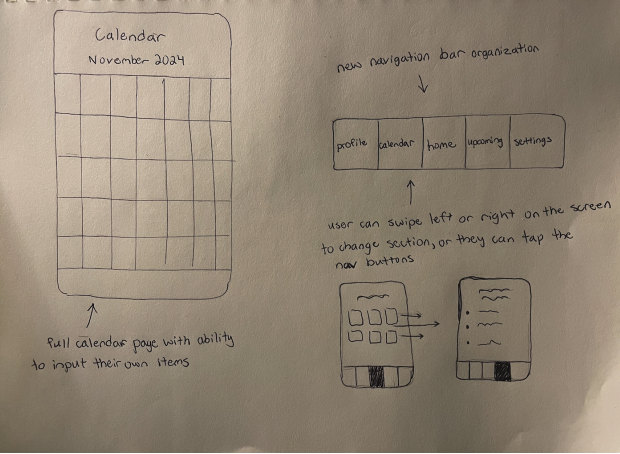 Calendar
November 2024
full calendar page with ability
to input their own items
new navigation bar organization
profile
calendar
home
upcoming
settings
user can swipe left or right on the screen
to change section, or they can tap the
nav buttons